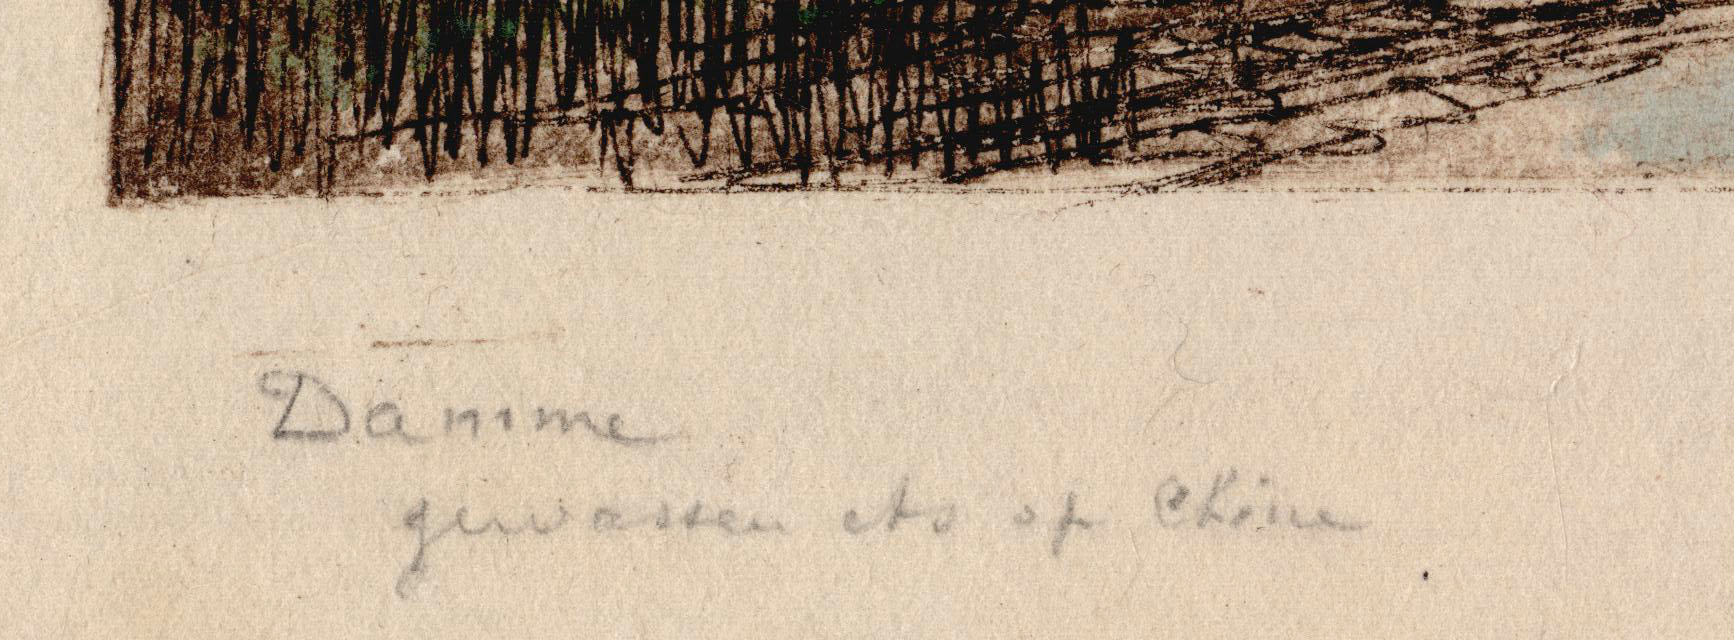 Damme
gewassen ets op Chine